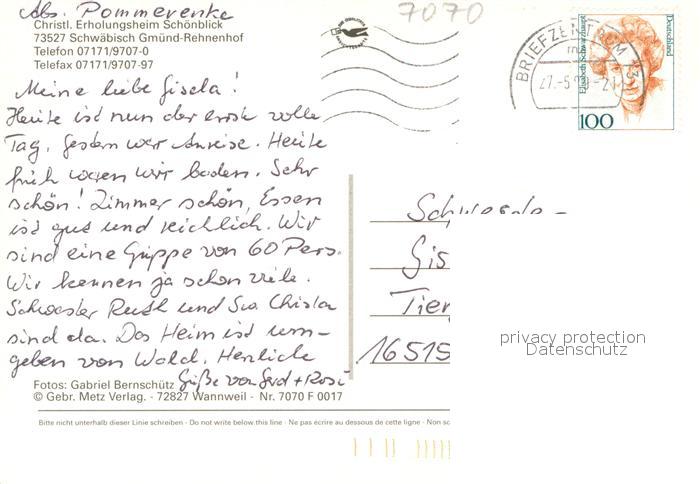 Abs. Pommerenke
Christl. Erholungsheim Schönblick
73527 Schwäbisch Gmünd-Rehnenhof
Telefon 07171/9707-0
Telefax 07171/9707-97
7070
BRIEFZENTRUM 73
27.-5.
Elisabeth Schwarzhaupt
Deutschland
100
Meine liebe Gisela!
Heute ist nun der erste volle
Tag, gestern war Anreise. Heute
früh waren wir baden. Sehr
schön! Zimmer schön, Essen
ist gut und reichlich. Wir
sind eine Gruppe von 60 Pers.
Wir kennen ja schon viele.
Schwester Ruth und Sr. Christa
sind da. Das Heim ist um-
geben von Wald. Herzliche
Grüße von Gerd + Rosi
Gis
Tier
16515
privacy protection
Datenschutz
Fotos: Gabriel Bernschütz
© Gebr. Metz Verlag. - 72827 Wannweil - Nr. 7070 F 0017
Bitte nicht unterhalb dieser Linie schreiben - Do not write below this line - Ne pas écrire au dessous de cette ligne - Non sc